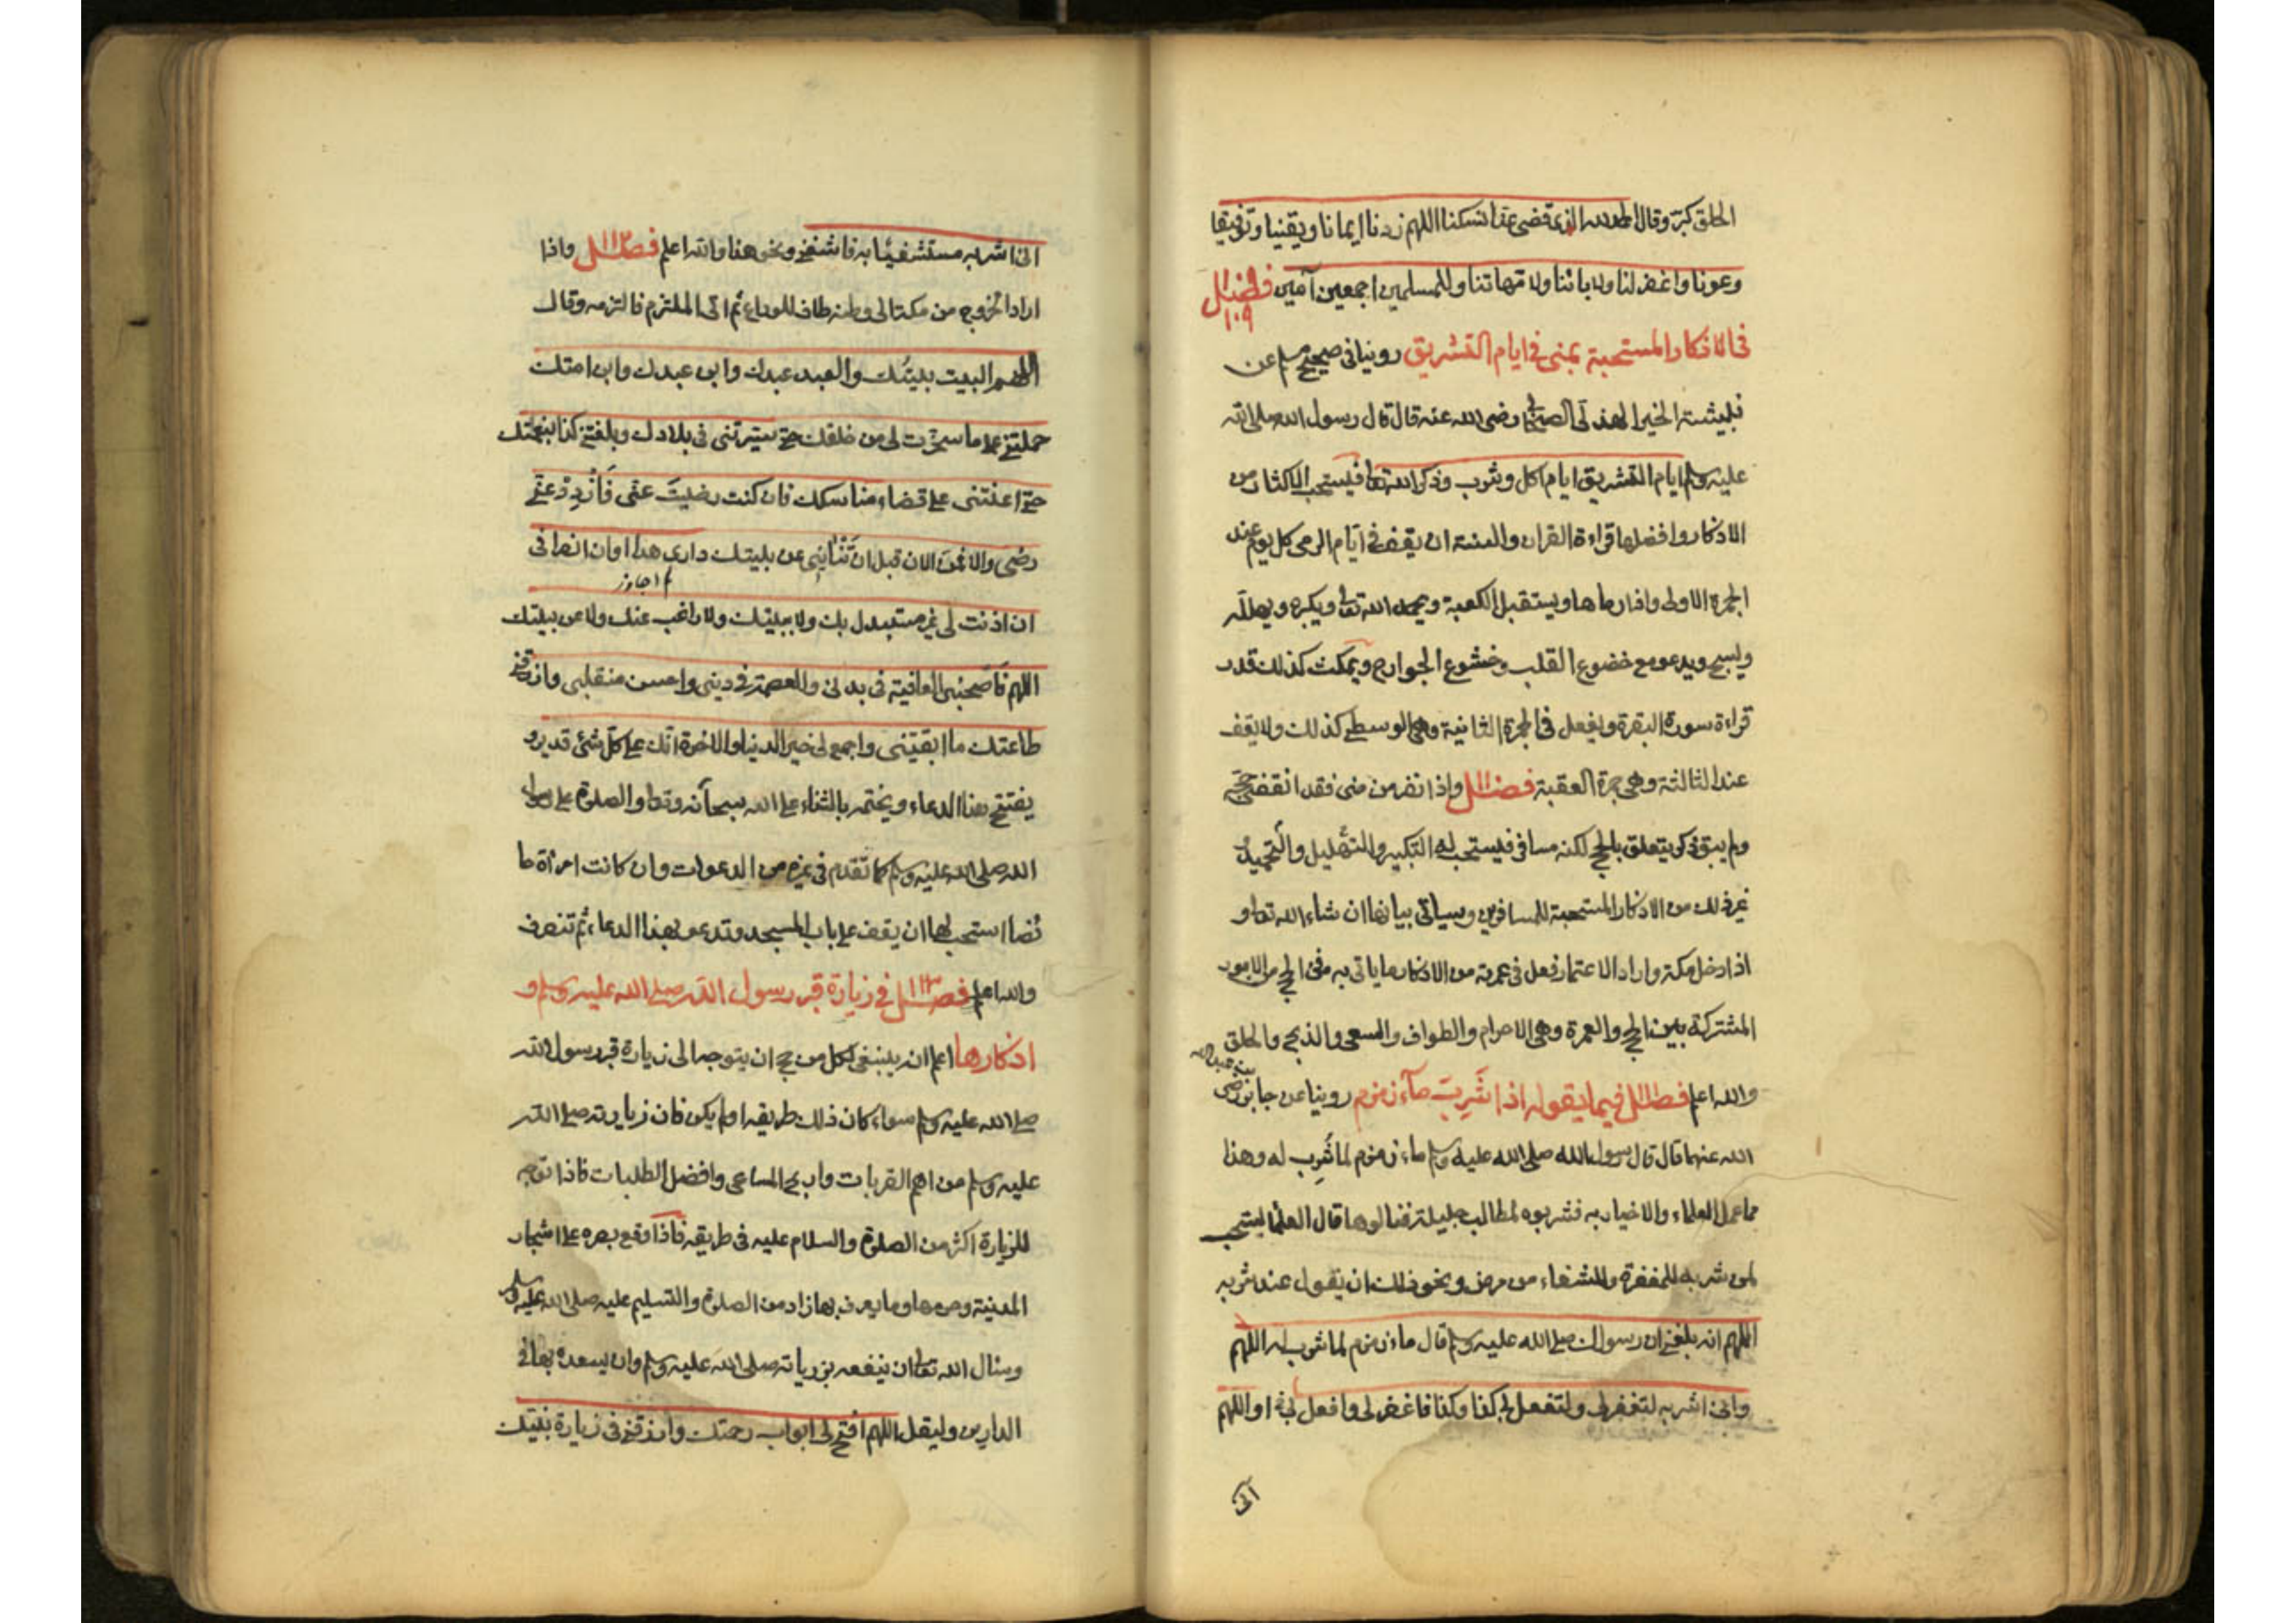 الحلق كبر وقال الحمد لله الذي قضى عنا نسكنا اللهم زدنا ايمانا ويقينا وتوفيقا
وعونا واغفر لنا ولابائنا ولامهاتنا وللمسلمين اجمعين آمين فصل
١٠٩
في الاذكار المستحبة بمنى في ايام التشريق روينا في صحيح مسلم عن
نبيشة الخير الهذلي الصحابي رضى الله عنه قال قال رسول الله صلى الله
عليه وسلم ايام التشريق ايام اكل وشرب وذكر الله تعا فيستحب الاكثار من
الاذكار وافضلها قراءة القران والسنة ان يقف في ايام الرمى كل يوم عند
الجمرة الاولى واذا رماها ويستقبل الكعبة ويحمد الله تعالى ويكبره ويهلله
ويسبح ويدعو مع خضوع القلب وخشوع الجوارح ويمكث كذلك قدر
قراءة سورة البقرة ويفعل في الجمرة الثانية وهى الوسطى كذلك ولا يقف
عند الثالثة وهى جمرة العقبة فصل واذا نفر من منى فقد انقضى حجه
ولم يبق ذكر يتعلق بالحج لكنه مسافر فيستحب له التكبير والتهليل والتحميد
غير ذلك من الاذكار المستحبة للمسافرين وسياتي بيانها ان شاء الله تعا و
اذا دخل مكة واراد الاعتمار فعل في عمرته من الاذكار ما ياتى به في الحج من الامور
المشتركة بين الحج والعمرة وهى الاحرام والطواف والسعى والذبح والحلق
والله اعلم فصل فيما يقوله اذا شَرِبَ مآء زمزم روينا عن جابر رضى
بن عبد الله
الله عنهما قال قال رسول الله صلى الله عليه وسلم ماء زمزم لما شُرِب له وهذا
مما عمل العلماء والاخيار به فشربوه لمطالب جليلة فنالوها قال العلما يستحب
لمن شربه للمغفرة وللشفاء من مرض ونحو ذلك ان يقول عند شربه
اللهم انه بلغني ان رسولك صلى الله عليه وسلم قال ماء زمزم لما شرب له اللهم
وانى اشربه لتغفر لى ولتفعل لى كذا وكذا فاغفر لى وافعل لى او اللهم
انى
انى اشربه مستشفيًا به فاشفني ونحو هذا والله اعلم فصل واذا
١١٢
اراد الخروج من مكة الى وطنه طاف للوداع ثم اتى الملتزم فالتزمه وقال
اللهم البيت بيتُك والعبد عبدك وابن عبدك وابن امتك
حملتني على ما سخرت لى من خلقك حتى سيرتنى في بلادك وبلغتني بنعمتك
حتى اعنتنى على قضاء مناسكك فان كنت رضيتَ عنى فَازْدِدْ عني
رضى والا فمن الان قبل ان تَنْأى عن بيتك دارى هذا اوان انصرافى
ان اذنت لى غير مستبدل بك ولا ببيتك ولا راغب عنك ولا عن بيتك
اللهم فَاصحبنى العافية في بدنى والعصمة في دينى واحسن منقلبى وارزقني
طاعتك ما ابقيتنى واجمع لى خير الدنيا والاخرة انك على كل شئ قدير و
يفتتح هذا الدعاء ويختمه بالثناء على الله سبحآنه وتعا والصلوة على رسول
الله صلى الله عليه وسلم كما تقدم في غيره من الدعوات وان كانت امرأة حا
ئضا استحب لها ان يقف على باب المسجد وتدعو بهذا الدعاء ثم تنصرف
والله اعلم فصل في زيارة قبر رسول الله صلى الله عليه وسلم و
١١٣
اذكارها اعلم انه ينبغى لكل من حج ان يتوجه الى زيارة قبر رسول الله
صلى الله عليه وسلم سواء كان ذلك طريقه او لم يكن فان زيارته صلى الله
عليه وسلم من اهم القربات واربح المساعى وافضل الطلبات فاذا توجه
للزيارة اكثر من الصلوة والسلام عليه في طريقه فاذا وقع بصره على اشجار
المدينة وحرمها وما يعرف بها زاد من الصلوة والتسليم عليه صلى الله عليه وسلم
وسال الله تعا ان ينفعه بزيارته صلى الله عليه وسلم وان يسعده بها في
الدارين وليقل اللهم افتح لى ابواب رحمتك وارزقني في زيارة نبيك